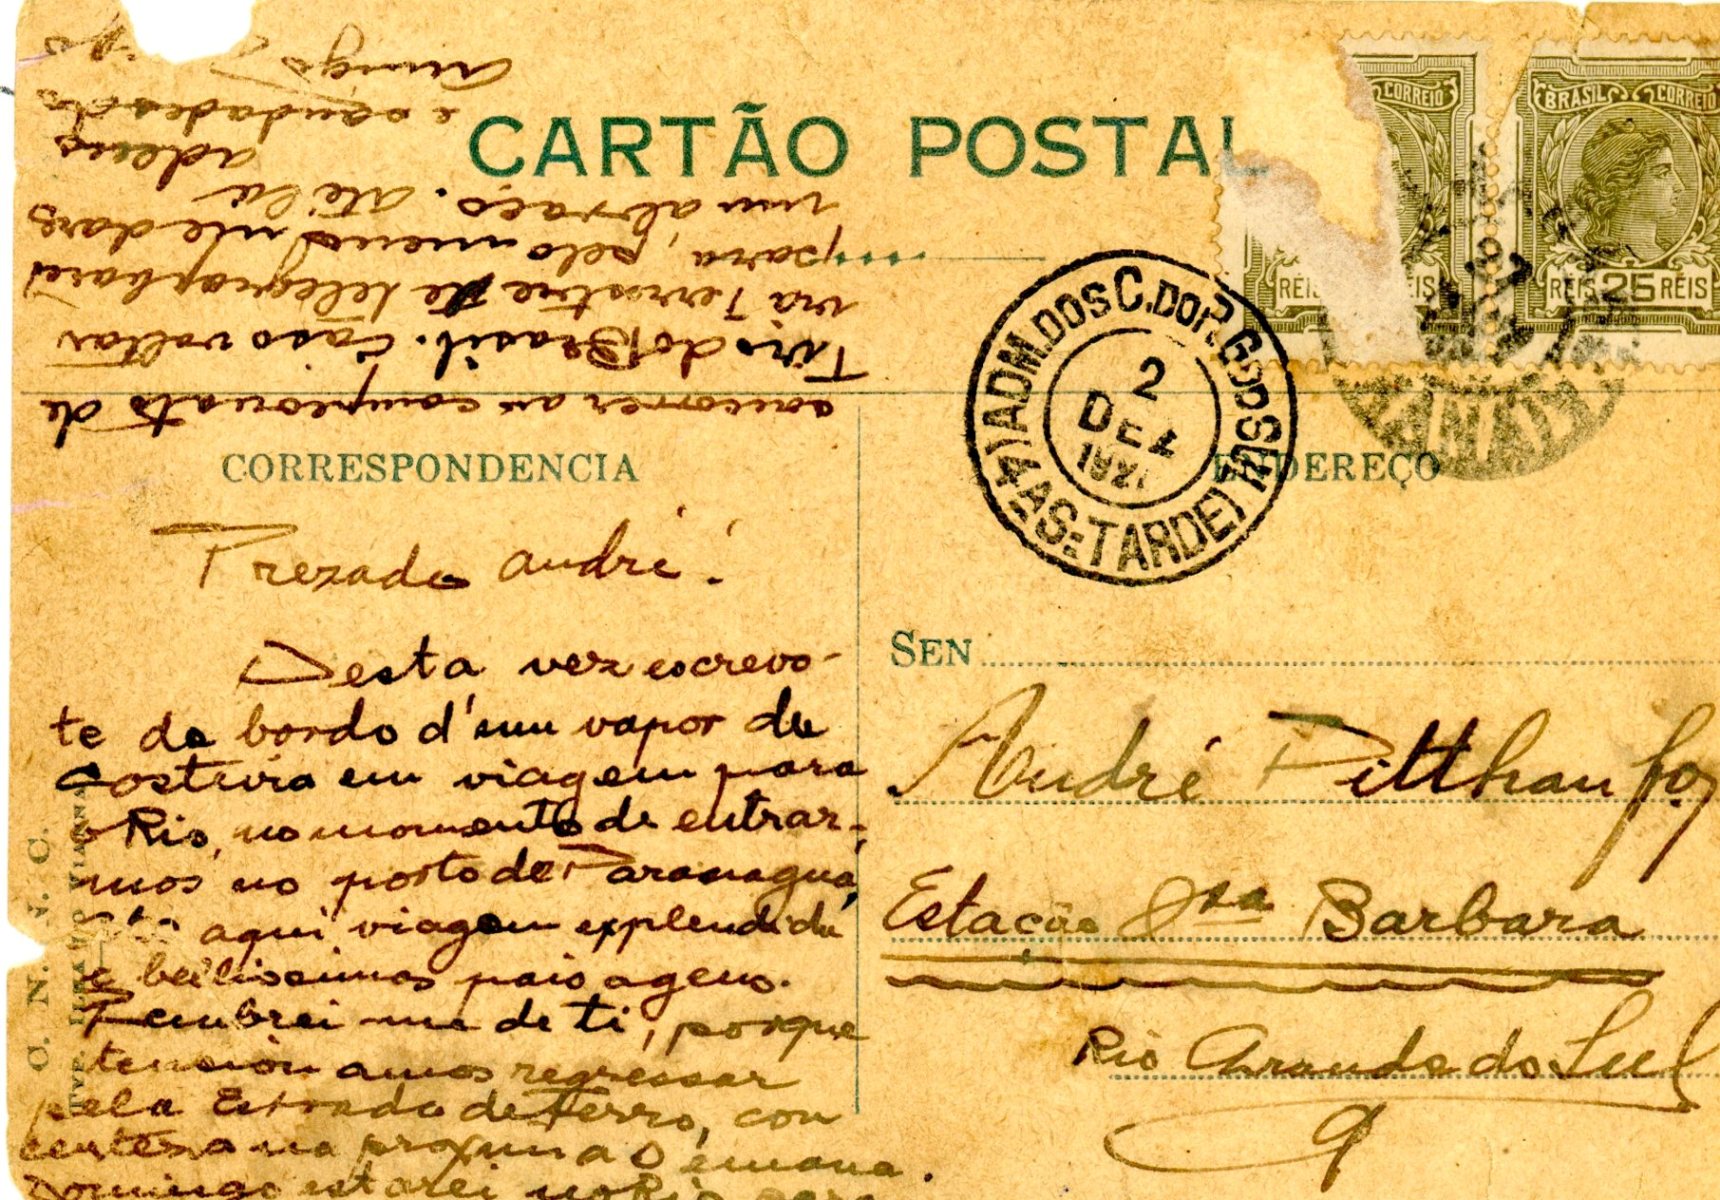 CARTÃO POSTAL
BRASIL CORREIO
CORREIO
REIS 25 REIS
ADM. DOS C. DO R. G. DO SUL
2
DEZ
192
(4ª AS: TARDE)
CORRESPONDENCIA
ENDEREÇO
Prezado André!
Desta vez escrevo-
te de bordo d'um vapor da
Costeira em viagem para
o Rio, no momento de entrar-
mos no porto de Paranaguá,
aqui viagem explendida
e bellissimas paisagens.
Lembrei me de ti, porque
tencionamos regressar
pela Estrada de Ferro, com
certeza na proxima semana.
Domingo estarei no Rio para
concorrer ao campeonato de
Tiro do Brasil. Caso voltar
via Terrestre te telegrapharei
para, pelo menos me dares
um abraço. Até lá
adeus
e saudades do
Amigo
SEN
André Pitthan
Estação Sta Barbara
Rio Grande do Sul
O. N. N. C.
TYP. VIANNA